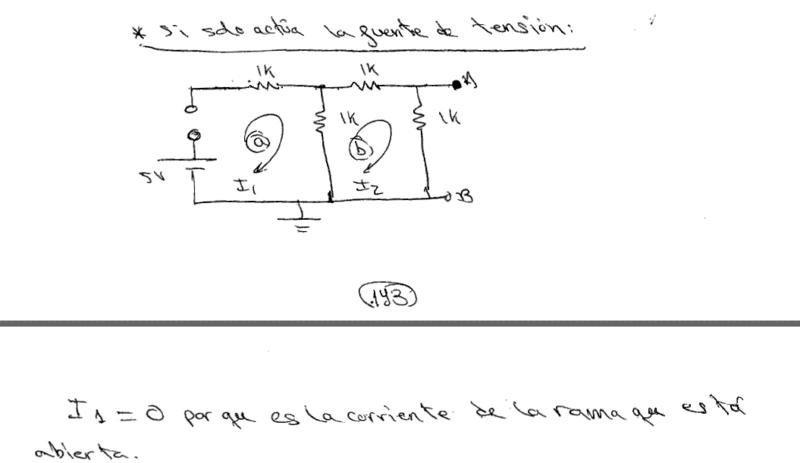 * Si solo actúa la fuente de tensión:
1K 1K A
1K 1K
a b
5V I1 I2 B
143
I1 = 0 por que es la corriente de la rama que está
abierta.